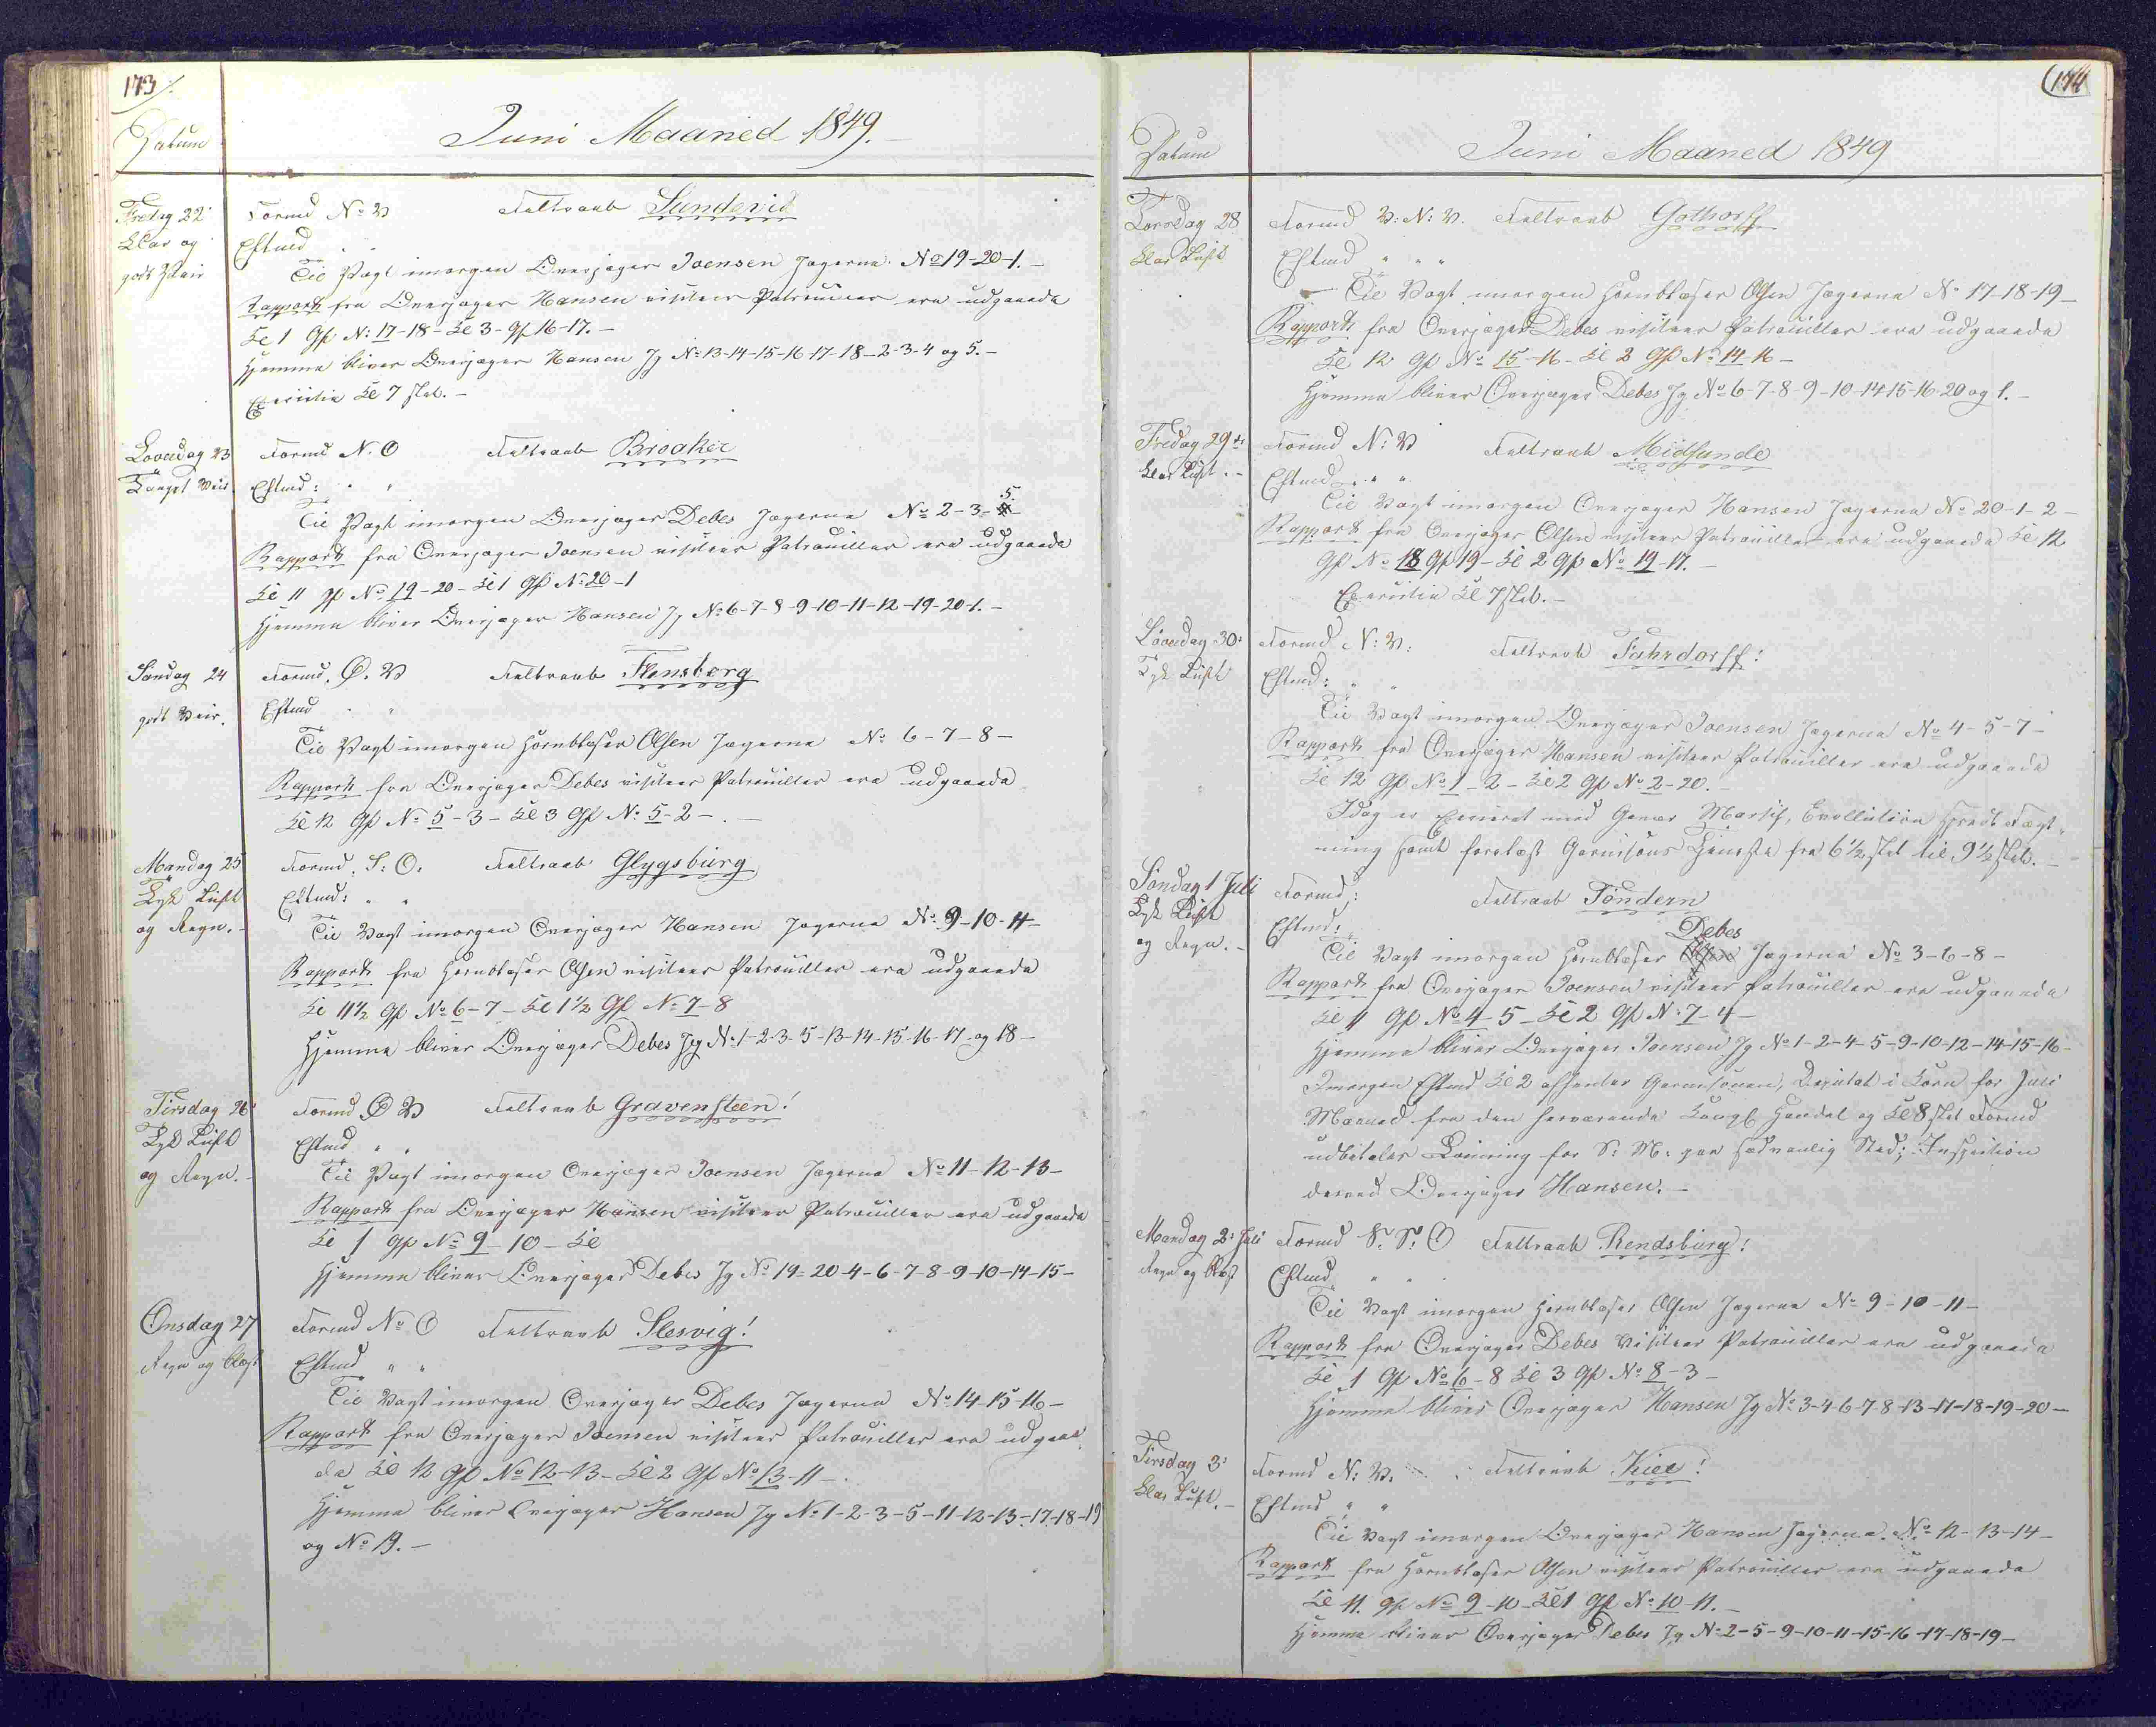 173/.
Datum
Juni Maaned 1849.-
Fredag 22'
Klar og
godt Veir
Formd N: V Feltraab Sundevid
Eftmd " "
Til Vagt imorgen Overjæger Joensen Jægerne No 19-20-1.-
Rapport fra Overjæger Hansen visiteer Patrouiller ere udgaaede
Kl 1 Gfr N: 17-18- Kl 3- gf 16-17.-
Hjemme bliver Overjæger Hansen Jg No 13-14-15-16-17-18-2-3-4 og 5.-
Exercitie Kl 7 slet.-
Løverdag 23
Taaget Veir
Formd N. O Feltraab Broaker
Eftmd: " "
Til Vagt imorgen Overjæger Debes Jægerne No 2-3-5
Rapport fra Overjæger Joensen visiteer Patrouiller ere udgaaede
Kl 11 gf No 19-20- Kl 1 Gf No 20-1
Hjemme bliver Overjæger Hansen Jg No 6-7-8-9-10-11-12-19-20-1.-
Søndag 24
godt Veir.
Formd. Ø. V Feltraab Flensborg
Eftmd " "
Til Vagt imorgen Hornblæser Olsen Jægerne No 6-7-8-
Rapport fra Overjæger Debes visiteer Patrouiller ere udgaaede
Kl 12 Gf No 5-3- Kl 3 Gf N: 5-2-.
Mandag 25
Tyk Luft
og Regn.-
Formd. S: O. Feltraab Glygsburg
Eftmd: " "
Til Vagt imorgen Overjæger Hansen Jægerne No 9-10-11-
Rapport fra Hornblæser Olsen visiteer Patrouiller ere udgaaede
Kl 11½ Gf No 6-7- Kl 1½ Gf No 7-8
Hjemme bliver Overjæger Debes Jg N: 1-2-3-5-13-14-15-16-17-og 18-
Tirsdag 26
Tyk Luft
og Regn.-
Formd Ø V Feltraab Gravensteen!
Eftmd " "
Til Vagt imorgen Overjæger Joensen Jægerne No 11-12-13-
Rapport fra Overjæger Hansen visiteer Patrouiller ere udgaaede
Kl 1 gf No 9-10- Kl
Hjemme bliver Overjæger Debes Jg No 19-20-4-6-7-8-9-10-14-15-
Onsdag 27
Regn og Blæst
Formd No O Feltraab Slesvig!
Eftmd " "
Til Vagt imorgen Overjæger Debes Jægerne No 14-15-16-
Rapport fra Overjæger Joensen visiteer Patrouiller ere udgaae-
de Kl 12 Gf No 12-13- Kl 2 Gf No 13-11-
Hjemme bliver Overjæger Hansen Jg No 1-2-3-5-11-12-13-17-18-19
og No 19.-
174
Datum
Juni Maaned 1849
Torsdag 28
Klar Luft
Formd V: N: V. Feltraab Gottorff
Eftmd " " "
Til Vagt imorgen Hornblæser Olsen Jægerne No 17-18-19-
Rapport fra Overjæger Debes visiteer Patrouiller ere udgaaede
Kl 12 Gf No 15-16- Kl 2 Gf No 14-16-
Hjemme bliver Overjæger Debes Jg No 6-7-8-9-10-14-15-16-20 og 1.-
Fredag 29de
Klar Luft.-
Formd N: V Feltraab Midsunde
Eftmd " "
Til Vagt imorgen Overjæger Hansen Jægerne No 20-1-2-
Rapport fra Overjæger Olsen visiteer Patrouiller ere udgaaede Kl 12
Gf No 18 gf 19- Kl 2 gf No 19-17.-
Exercitie Kl 7 slet.-
Løverdag 30:
Tyk Luft
Formd N: V: Feltraab Fahrdorff!
Eftmd: " "
Til Vagt imorgen Overjæger Joensen Jægerne No 4-5-7-
Rapport fra Overjæger Hansen visiteer Patrouiller ere udgaaede
Kl 12 Gf No 1-2- Kl 2 Gf No 2-20.-
Idag er Exerceret med Gevær Marsch, Evollution Spredt Fægt-
ning samt forelæst Garnisons Tjeneste fra 6½ slet til 9½ slet.-
Søndag 1 Juli
Tyk Luft
og Regn.-
Formd: Feltraab Tøndern
Eftmd:
Debes
Til Vagt imorgen Hornblæser Olsen Jægerne No 3-6-8-
Rapport fra Overjæger Joensen visiteer Patrouiller ere udgaaede
Kl 11 gf No 4-5- Kl 2 gf N: 7-4-
Hjemme bliver Overjæger Joensen Jg No 1-2-4-5-9-10-12-14-15-16-
Imorgen Eftmd Kl 2 afhenter Garnisonen, Deputat i Korn for Juli
Maaned fra den herværende Kongl Handel og Kl 8 slet Formd
udbetales Lønning for S: M: paa sædvanlig Sted; Inspection
derved Overjæger Hansen.-
Mandag 2: Juli
Regn og Blæst
Formd S: S: O Feltraab Rendsburg!
Eftmd " "
Til Vagt imorgen Hornblæser Olsen Jægerne No 9-10-11-
Rapport fra Overjæger Debes visiteer Patrouiller ere udgaaede
Kl 1 Gf No 6-8 Kl 3 gf No 8-3-
Hjemme bliver Overjæger Hansen Jg No 3-4-6-7-8-13-17-18-19-20-
Tirsdag 3:
Klar Luft.-
Formd N: V. Feltraab Kiel!
Eftmd " "
Til Vagt imorgen Overjæger Hansen Jægerne. No 12-13-14-
Rapport fra Hornblæser Olsen visiteer Patrouiller ere udgaaede
Kl 11. gf No 9-10- Kl 1 Gf No 10-11.-
Hjemme bliver Overjæger Debes Jg No 2-5-9-10-11-15-16-17-18-19-